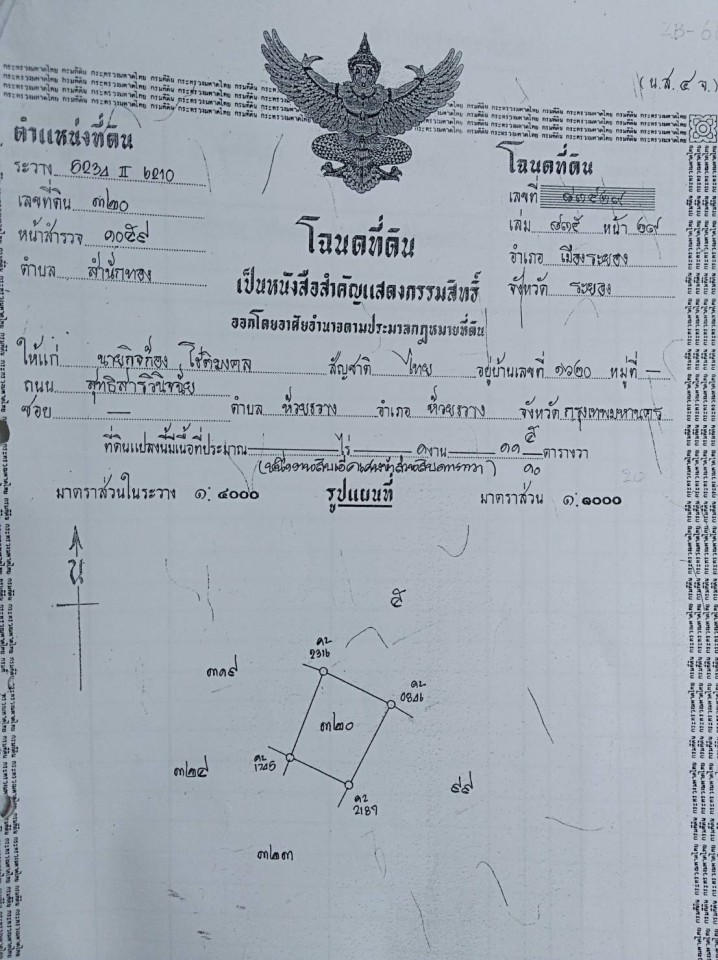 (น.ส. ๔ จ.)
ตำแหน่งที่ดิน
ระวาง 5234 II 6210
เลขที่ดิน ๓๒๐
หน้าสำรวจ ๑๐๕๙
ตำบล สำนักทอง
โฉนดที่ดิน
เลขที่
เล่ม หน้า ๒๙
อำเภอ เมืองระยอง
จังหวัด ระยอง
โฉนดที่ดิน
เป็นหนังสือสำคัญแสดงกรรมสิทธิ์
ออกโดยอาศัยอำนาจตามประมวลกฎหมายที่ดิน
ให้แก่ นายกิจก้อง โชติมงคล สัญชาติ ไทย อยู่บ้านเลขที่ ๑๖๒๐ หมู่ที่ —
ถนน สุทธิสารวินิจฉัย
ซอย — ตำบล ห้วยขวาง อำเภอ ห้วยขวาง จังหวัด กรุงเทพมหานคร
ที่ดินแปลงนี้มีเนื้อที่ประมาณ — ไร่ ๑ งาน ๑๑ ๕/๑๐ ตารางวา
(หนึ่งงานสิบเอ็ดเศษห้าส่วนสิบตารางวา)
มาตราส่วนในระวาง ๑: ๔๐๐๐ รูปแผนที่ มาตราส่วน ๑: ๑๐๐๐
น
๓๑๙
ค2
2316
ค2
0846
๓๒๐
๓๒๔
ค2
1745
ค2
2189
๙๙
๓๒๓